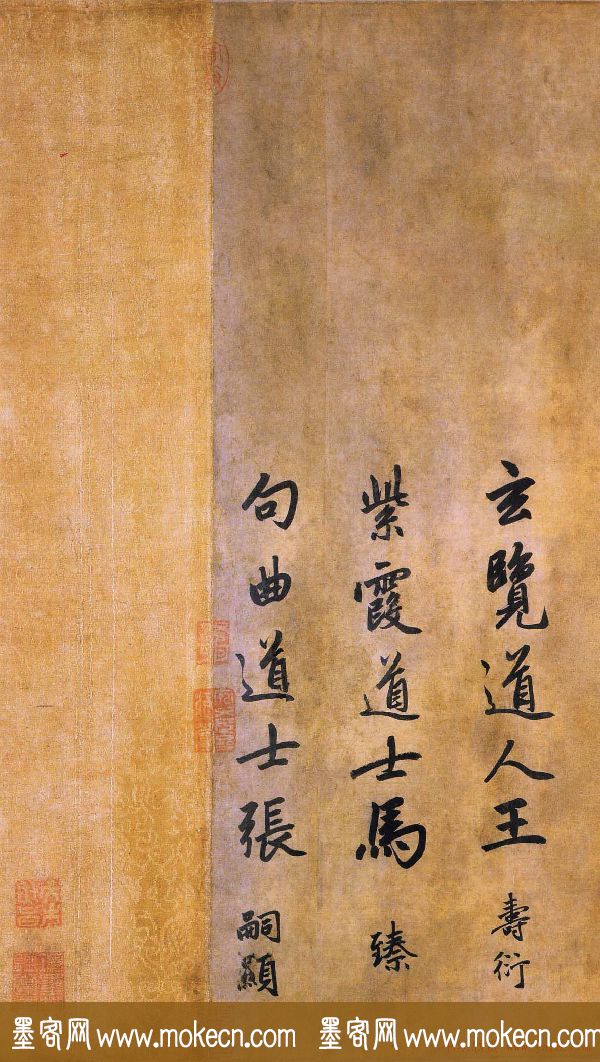 玄覽道人王壽衍
紫霞道士馬臻
句曲道士張嗣顯
墨客网 www.mokecn.com 墨客网 www.mokecn.com